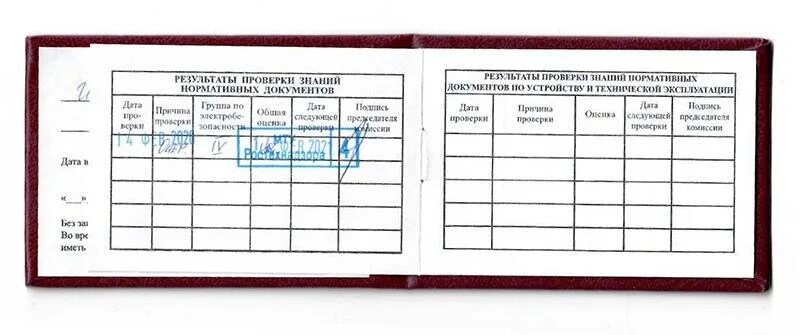 РЕЗУЛЬТАТЫ ПРОВЕРКИ ЗНАНИЙ
НОРМАТИВНЫХ ДОКУМЕНТОВ
Дата про- верки
Причина проверки
Группа по электробе- зопасности
Общая оценка
Дата следующей проверки
Подпись председателя комиссии
14 ФЕВ 2020
IV
ФЕВ 2021
МТУ
Ростехнадзора
4
Дата в
«__»
Без за
Во вре
иметь
РЕЗУЛЬТАТЫ ПРОВЕРКИ ЗНАНИЙ НОРМАТИВНЫХ
ДОКУМЕНТОВ ПО УСТРОЙСТВУ И ТЕХНИЧЕСКОЙ ЭКСПЛУАТАЦИИ
Дата проверки
Причина проверки
Оценка
Дата следующей проверки
Подпись председателя комиссии